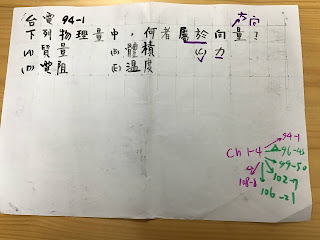 台電 94-1
方向
下列物理量中，何者屬於向量？
(A) 質量 (B) 體積 (C) 力
(D) 電阻 (E) 溫度
94-1
Ch 1-4 96-45
99-50
102-7
108-8
106-21